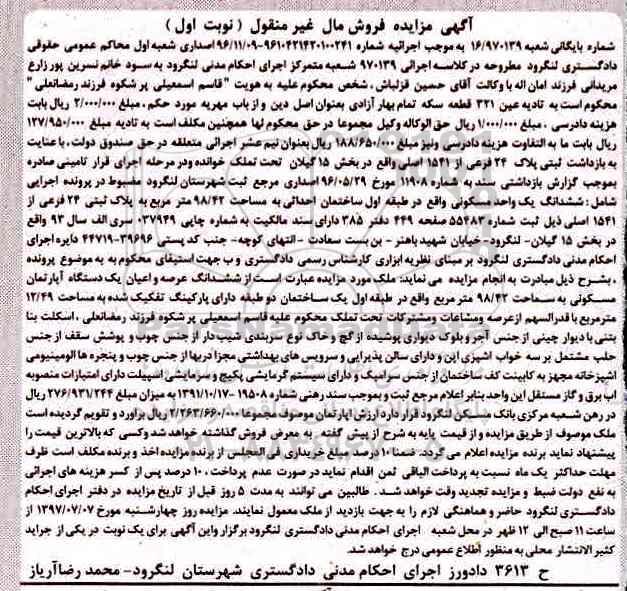 آگهی مزایده فروش مال غیر منقول ( نوبت اول )
شماره بایگانی شعبه ۱۶/۹۷۰۱۳۹ به موجب اجرائیه شماره ۹۶۱۰۴۲۱۴۲۰۱۰۰۲۴۱-۹۶/۱۱/۰۹ اصداری شعبه اول محاکم عمومی حقوقی
دادگستری لنگرود مطروحه در کلاسه اجرائی ۹۷۰۱۳۹ شعبه متمرکز اجرای احکام مدنی لنگرود به سود خانم نسرین پور زارع
مریدانی فرزند امان اله با وکالت آقای حسین قزلباش ، شخص محکوم علیه به هویت "قاسم اسمعیلی پر شکوه فرزند رمضانعلی"
محکوم است به تادیه عین ۳۲۱ قطعه سکه تمام بهار آزادی بعنوان اصل دین و از باب مهریه مورد حکم ، مبلغ ۲/۰۰۰/۰۰۰ ریال بابت
هزینه دادرسی ، مبلغ ۱/۰۰۰/۰۰۰ ریال حق الوکاله وکیل مجموعا در حق محکوم لها همچنین مکلف است به تادیه مبلغ ۱۳۷/۹۵۰/۰۰۰
ریال بابت ما به التفاوت هزینه دادرسی ونیز مبلغ ۱۸۸/۶۵۰/۰۰۰ ریال بعنوان نیم عشر اجرائی متعلقه در حق صندوق دولت ، با عنایت
به بازداشت ثبتی پلاک ۲۴ فرعی از ۱۵۴۱ اصلی واقع در بخش ۱۵ گیلان تحت تملک خوانده ودر مرحله اجرای قرار تامینی صادره
بموجب گزارش بازداشتی سند به شماره ۱۱۹۰۸ مورخ ۹۶/۰۵/۲۹ اصداری مرجع ثبت شهرستان لنگرود مضبوط در پرونده اجرایی
شامل : ششدانگ یک واحد مسکونی واقع در طبقه اول ساختمان احداثی به مساحت ۹۸/۴۲ متر مربع به پلاک ثبتی ۲۴ فرعی از
۱۵۴۱ اصلی ذیل ثبت شماره ۵۵۴۸۳ صفحه ۴۴۹ دفتر ۳۸۵ دارای سند مالکیت به شماره چاپی ۰۳۷۹۴۹ سری الف سال ۹۳ واقع
در بخش ۱۵ گیلان- لنگرود-خیابان شهید باهنر - بن بست سعادت -انتهای کوچه- جنب کد پستی ۳۹۶۹۶-۴۴۷۱۹ دایره اجرای
احکام مدنی دادگستری لنگرود بر مبنای نظریه ابزاری کارشناس رسمی دادگستری و ب جهت استیفای محکوم به به موضوع پرونده
، بشرح ذیل مبادرت به انجام مزایده می نماید: ملک مورد مزایده عبارت است از ششدانگ عرصه و اعیان یک دستگاه آپارتمان
مسکونی به سماحت ۹۸/۴۲ متر مربع واقع در طبقه اول یک ساختمان دو طبقه دارای پارکینگ تفکیک شده به مساحت ۱۲/۴۹
مترمربع با قدرالسهم ازعرصه ومشاعات ومشترکات تحت تملک محکوم علیه قاسم اسمعیلی پر شکوه فرزند رمضانعلی ، اسکلت بنا
بتنی با دیوار چینی از جنس آجر و بلوک دیواری پوشیده از گچ و خاک نوع سربندی شیب دار از جنس چوب و پوشش سقف از جنس
حلب مشتمل بر سه خواب اشپزی اپن و دارای سالن پذیرایی و سرویس های بهداشتی مجزا دربها از جنس چوب و پنجره ها الومینیومی
اشپزخانه مجهز به کابینت کف ساختمان از جنس سرامیک و دارای سیستم گرمایشی پکیج و سرمایشی اسپیلت دارای امتیازات منصوبه
اب برق و گاز مستقل این واحد بنابر اعلام مرجع ثبت و بموجب سند رهنی شماره ۱۹۵۰۸-۱۳۹۱/۱۰/۱۷ به میزان مبلغ ۲۷۶/۹۳۱/۲۴۴ ریال
در رهن شعبه مرکزی بانک مسکن لنگرود قرار دارد ارزش اپارتمان موصوف مجموعا ۲/۲۶۳/۶۶۰/۰۰۰ ریال براورد و تقویم گردیده است
ملک موصوف از طریق مزایده و از قیمت پایه به شرح از پیش گفته در معرض فروش گذاشته خواهد شد وکسی که بالاترین قیمت را
پیشنهاد نماید برنده مزایده اعلام می گردد. ضمنا ۱۰ درصد مبلغ خریداری فی المجلس از برنده مزایده اخذ و برنده مکلف است ظرف
مهلت حداکثر یک ماه نسبت به پرداخت الباقی ثمن اقدام نماید در صورت عدم پرداخت ، ۱۰ درصد پس از کسر هزینه های اجرائی
به نفع دولت ضبط و مزایده تجدید وقت خواهد شد . طالبین می توانند به مدت ۵ روز قبل از تاریخ مزایده در دفتر اجرای احکام
دادگستری لنگرود حاضر و هماهنگی لازم را به جهت بازدید از ملک معمول نمایند. مزایده روز چهارشنبه مورخ ۱۳۹۷/۰۷/۰۷ از
ساعت ۱۱ صبح الی ۱۲ ظهر در محل شعبه اجرای احکام مدنی دادگستری لنگرود برگزار واین آگهی برای یک نوبت در یکی از جراید
کثیر الانتشار محلی به منظور اطلاع عمومی درج خواهد شد.
ح ۳۶۱۳ دادورز اجرای احکام مدنی دادگستری شهرستان لنگرود- محمد رضا آریاز